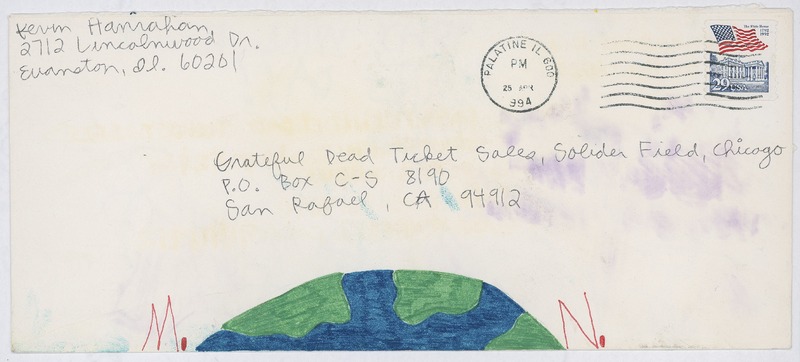 Kevin Hanrahan
2712 Lincolnwood Dr.
Evanston, Il. 60201
PALATINE IL 600
PM
25 APR
1994
The White House
1792 1992
29 USA
Grateful Dead Ticket Sales, Solider Field, Chicago
P.O. Box C-S 8190
San Rafael, CA 94912
M. N.